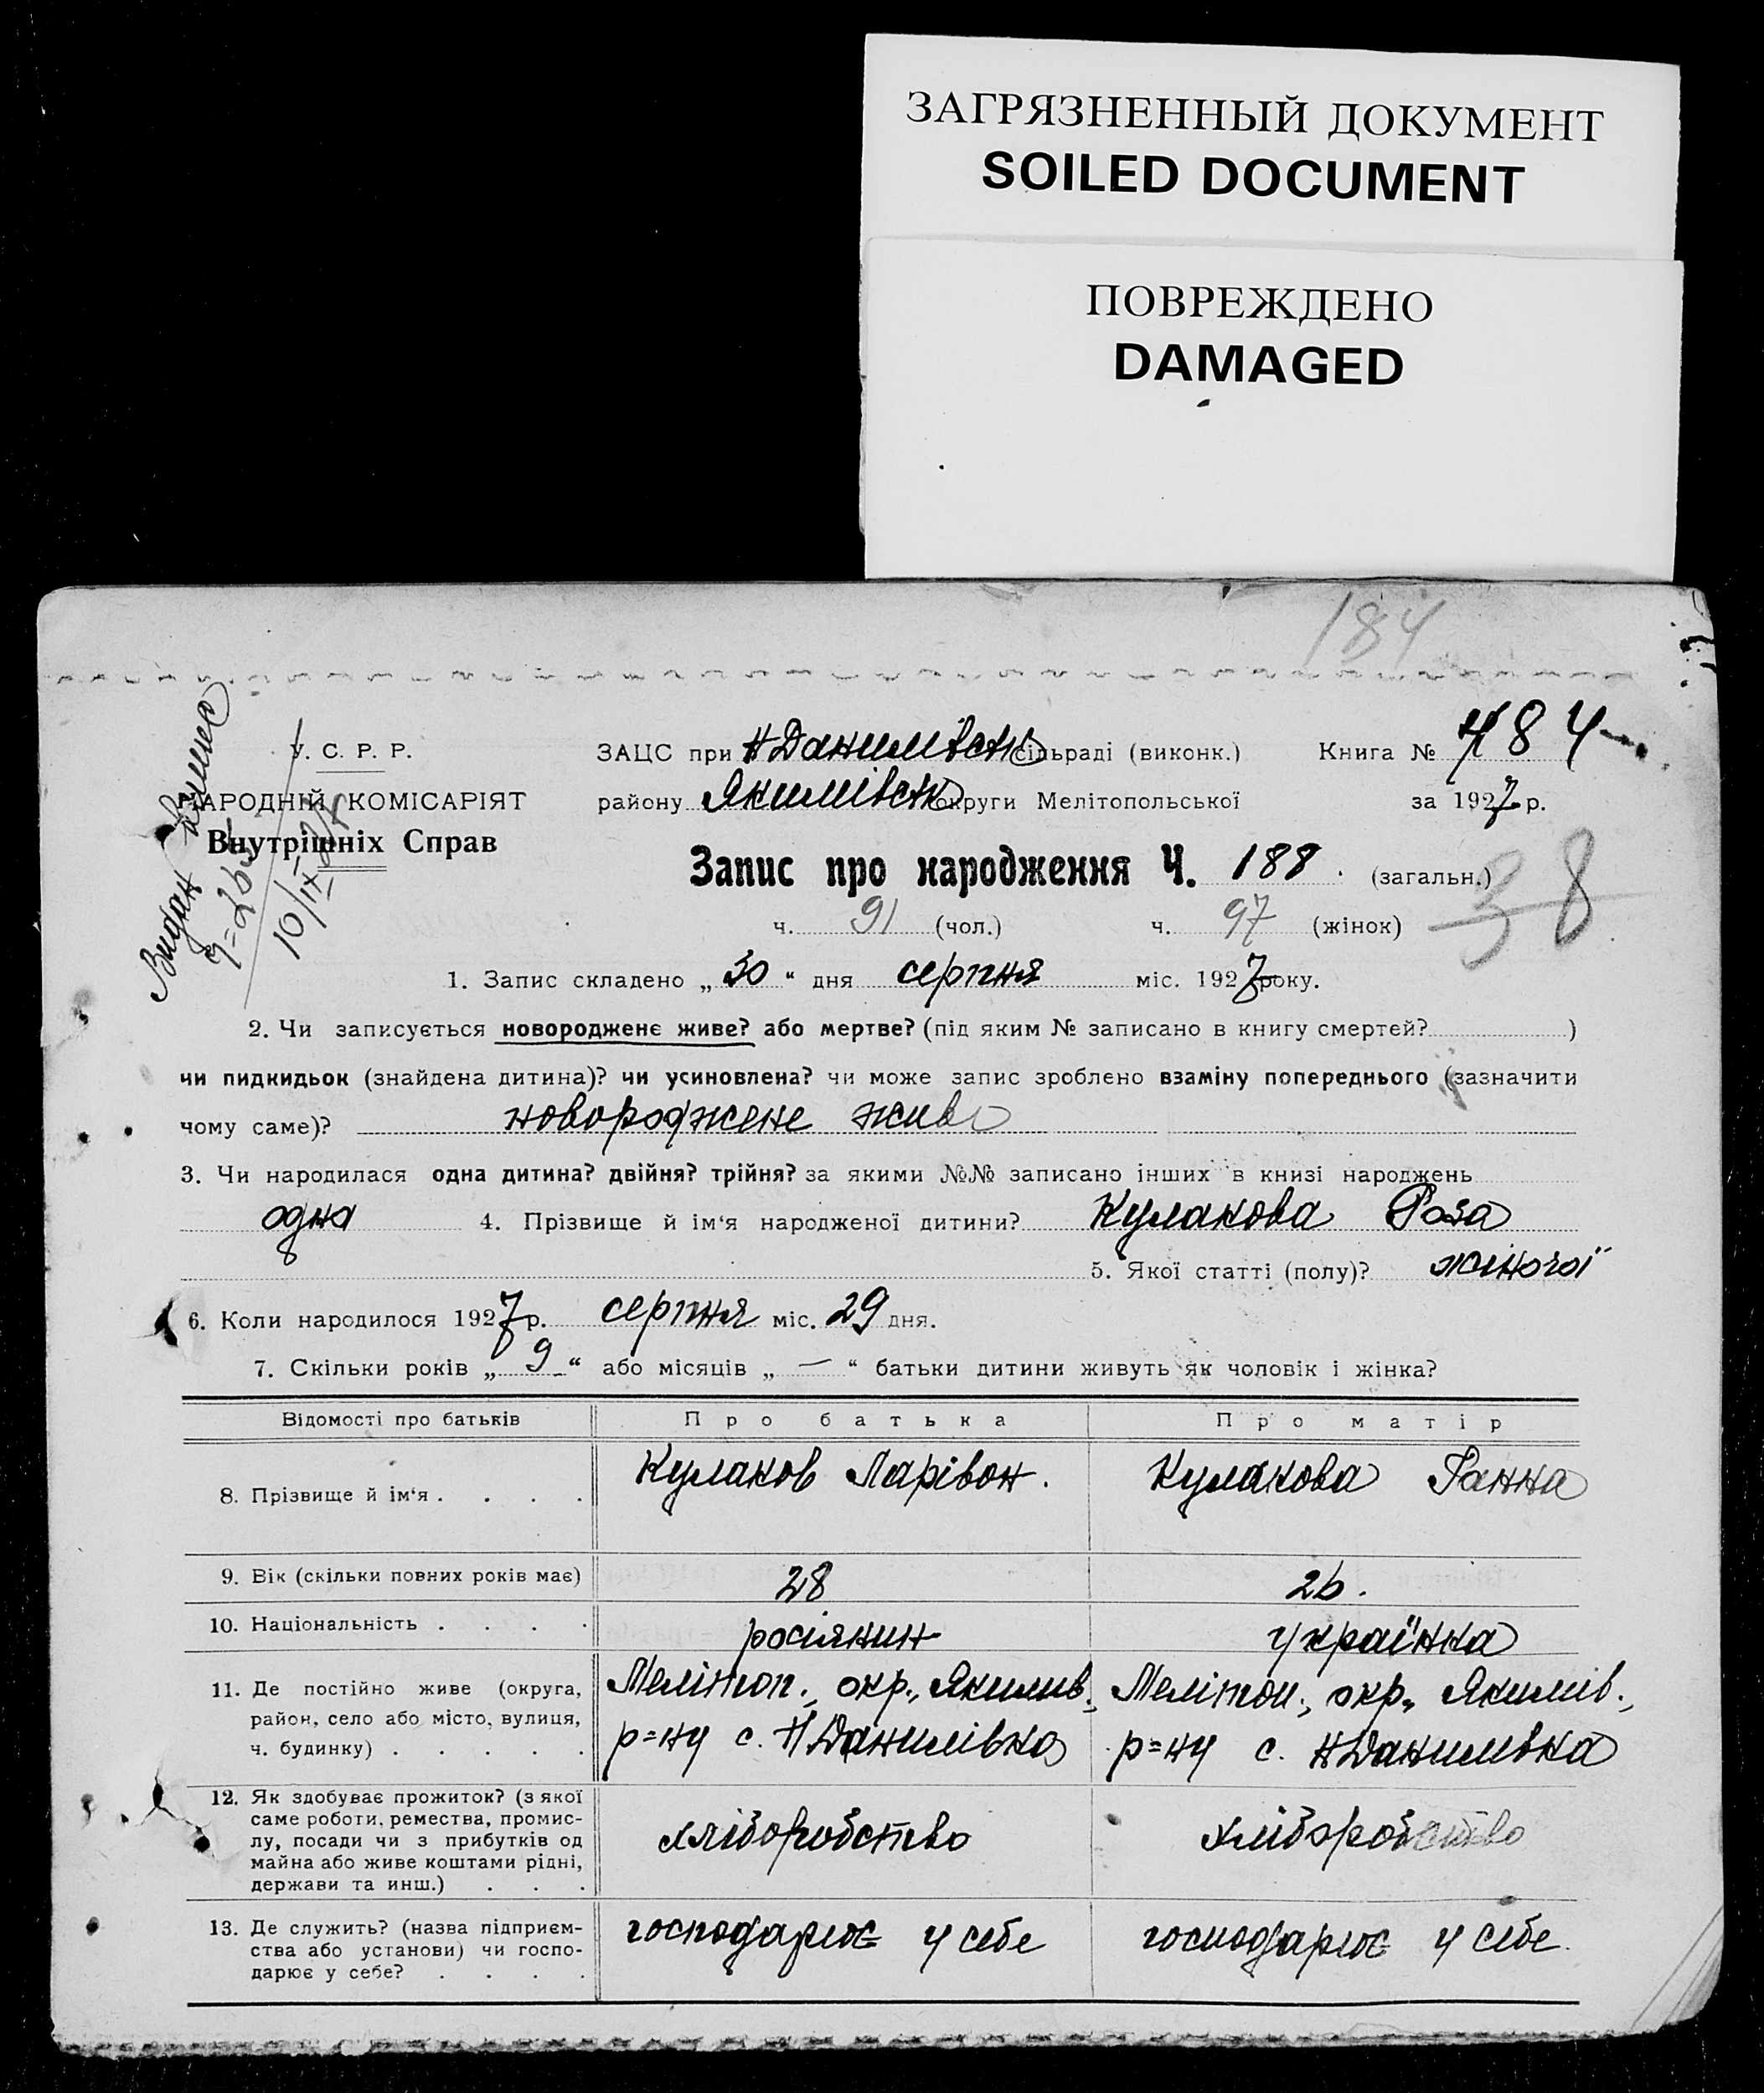 ЗАГРЯЗНЕННЫЙ ДОКУМЕНТ
SOILED DOCUMENT
ПОВРЕЖДЕНО
DAMAGED
184
У. С. Р. Р.
НАРОДНІЙ КОМІСАРІЯТ
Внутрішніх Справ
Видан
10/IX
ЗАЦС при Н Данилівськ сільраді (виконк.) Книга № 484
району Якимівськ округи Мелітопольської за 1927 р.
Запис про народження Ч. 188. (загальн.)
ч. 91 (чол.) ч. 97 (жінок)
38
1. Запис складено „ 30 “ дня серпня міс. 1927 року.
2. Чи записується новородженє живе? або мертве? (під яким № записано в книгу смертей? )
чи пидкидьок (знайдена дитина)? чи усиновлена? чи може запис зроблено взаміну попереднього (зазначити
чому саме)? новороджене живе
3. Чи народилася одна дитина? двійня? трійня? за якими №№ записано інших в книзі народжень
одна 4. Прізвище й ім‘я народженої дитини? Кулакова Роза
5. Якої статті (полу)? жіночої
6. Коли народилося 1927 р. серпня міс. 29 дня.
7. Скільки років „ 9 “ або місяців „ — “ батьки дитини живуть як чоловік і жінка?
Відомості про батьків Про батька Про матір
8. Прізвище й ім‘я . . . . Кулаков Ларівон. Кулакова Ганна
9. Вік (скільки повних років має) 28 26.
10. Національність . . . . росіянин українка
11. Де постійно живе (округа, район, село або місто, вулиця, ч. будинку) . . . . . Меліtоп., окр., Якимив. р=ну с. Н Данилівка Мелітоп., окр., Якимів., р=ну с. Н Данилівка
12. Як здобуває прожиток? (з якої саме роботи, ремества, промислу, посади чи з прибутків од майна або живе коштами рідні, держави та инш.) . . . хліборобство хліборобство
13. Де служить? (назва підприємства або установи) чи господарює у себе? . . . . господарює у себе господарює у себе.